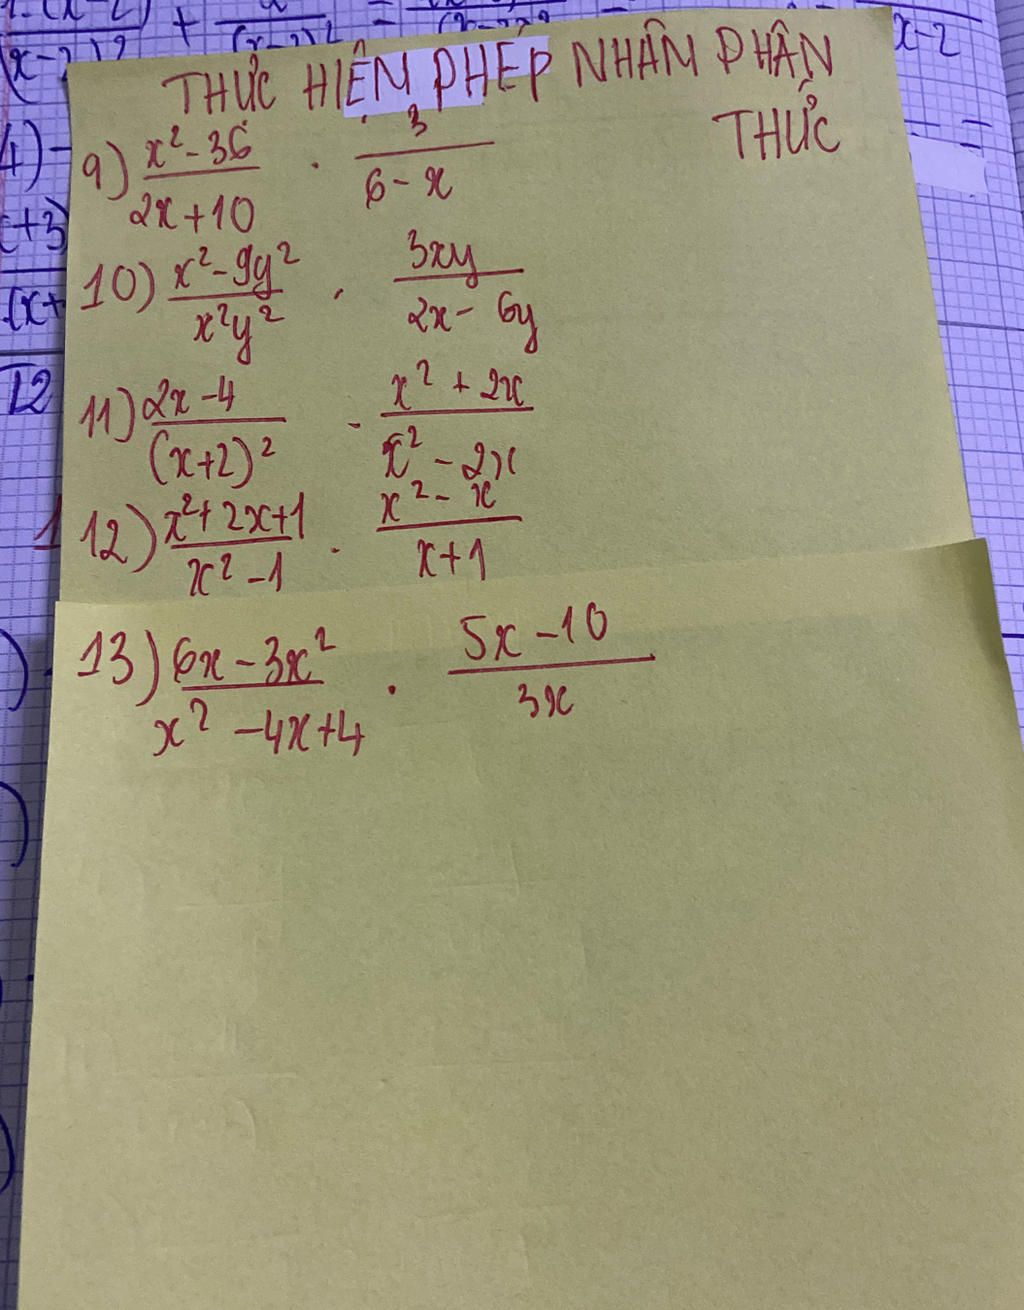 THỰC HIỆN PHÉP NHÂN PHÂN
THỨC
9) \frac{x²-36}{2x+10} · \frac{3}{6-x}
10) \frac{x²-9y²}{x²y²} · \frac{3xy}{2x-6y}
11) \frac{2x-4}{(x+2)²} · \frac{x²+2x}{x²-2x}
12) \frac{x²+2x+1}{x²-1} · \frac{x²-x}{x+1}
13) \frac{6x-3x²}{x²-4x+4} · \frac{5x-10}{3x}
x-2
12